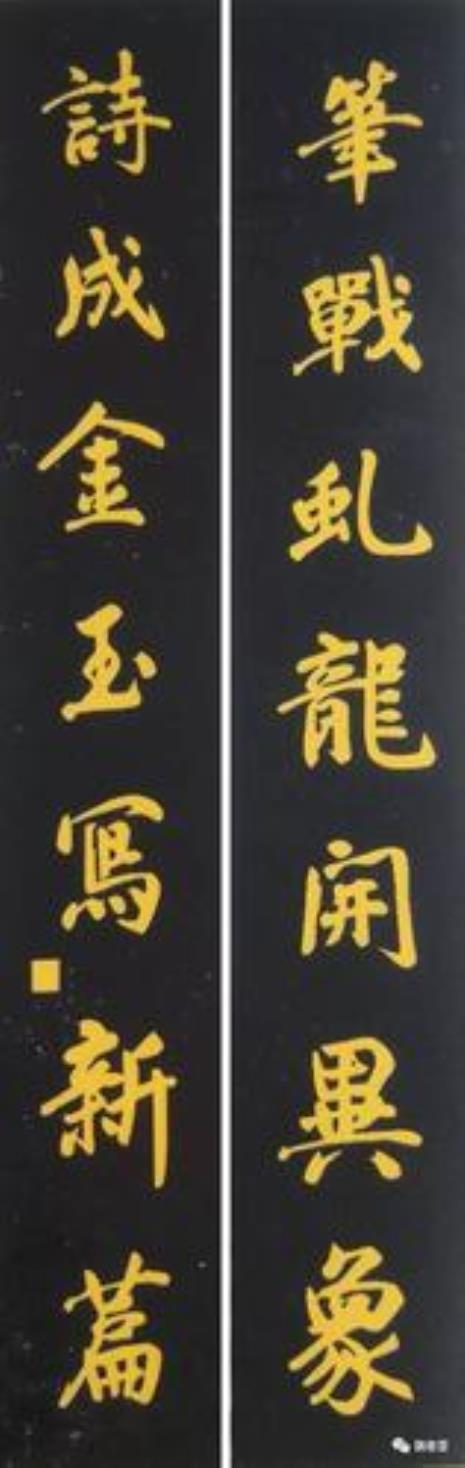 筆戰虬龍開異象
詩成金玉寫新篇